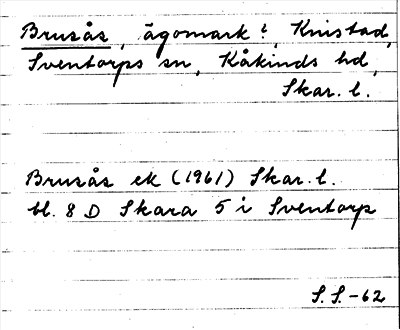 Brusås, ägomark?, Knistad,
Sventorps sn, Kåkinds hd,
Skar. l.
Brusås ek (1961) Skar. l.
bl. 8 D Skara 5 i Sventorp
S.S.-62